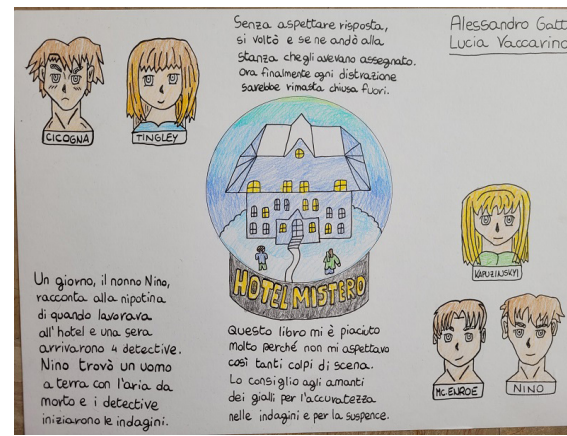 Senza aspettare risposta,
si voltò e se ne andò alla
stanza che gli avevano assegnato.
Ora finalmente ogni distrazione
sarebbe rimasta chiusa fuori.
Alessandro Gatt
Lucia Vaccarino
CICOGNA
TINGLEY
HOTEL MISTERO
KAPUZINSKYI
MC.ENROE
NINO
Un giorno, il nonno Nino,
racconta alla nipotina
di quando lavorava
all'hotel e una sera
arrivarono 4 detective.
Nino trovò un uomo
a terra con l'aria da
morto e i detective
iniziarono le indagini.
Questo libro mi è piaciuto
molto perché non mi aspettavo
così tanti colpi di scena.
Lo consiglio agli amanti
dei gialli per l'accuratezza
nelle indagini e per la suspence.